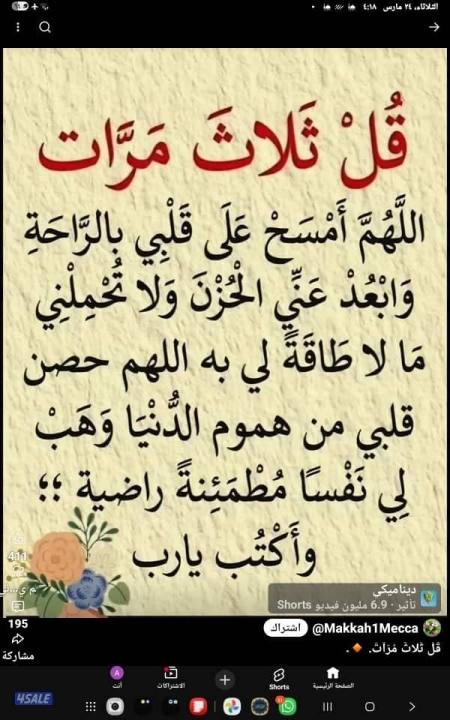 الثلاثاء، ٢٤ مارس ٤:١٨
قُلْ ثَلاثَ مَرَّات
اللَّهُمَّ أَمْسَحْ عَلَى قَلْبِي بالرَّاحَةِ
وَابْعُدْ عَنِّي الْحُزْنَ وَلا تُحْمِلْنِي
مَا لا طَاقَةً لي به اللهم حصن
قلبي من هموم الدُّنْيَا وَهَبْ
لِي نَفْسًا مُطْمَئِنةً راضية ؛؛
وأَكْتُب يارب
411
ديناميكي
تأثير · 6.9 مليون فيديو Shorts
195
مشاركة
@Makkah1Mecca
اشتراك
قُل ثَلاثَ مَرَاتَ. 🔸 .
الصفحة الرئيسية
Shorts
الاشتراكات
أنت
4SALE